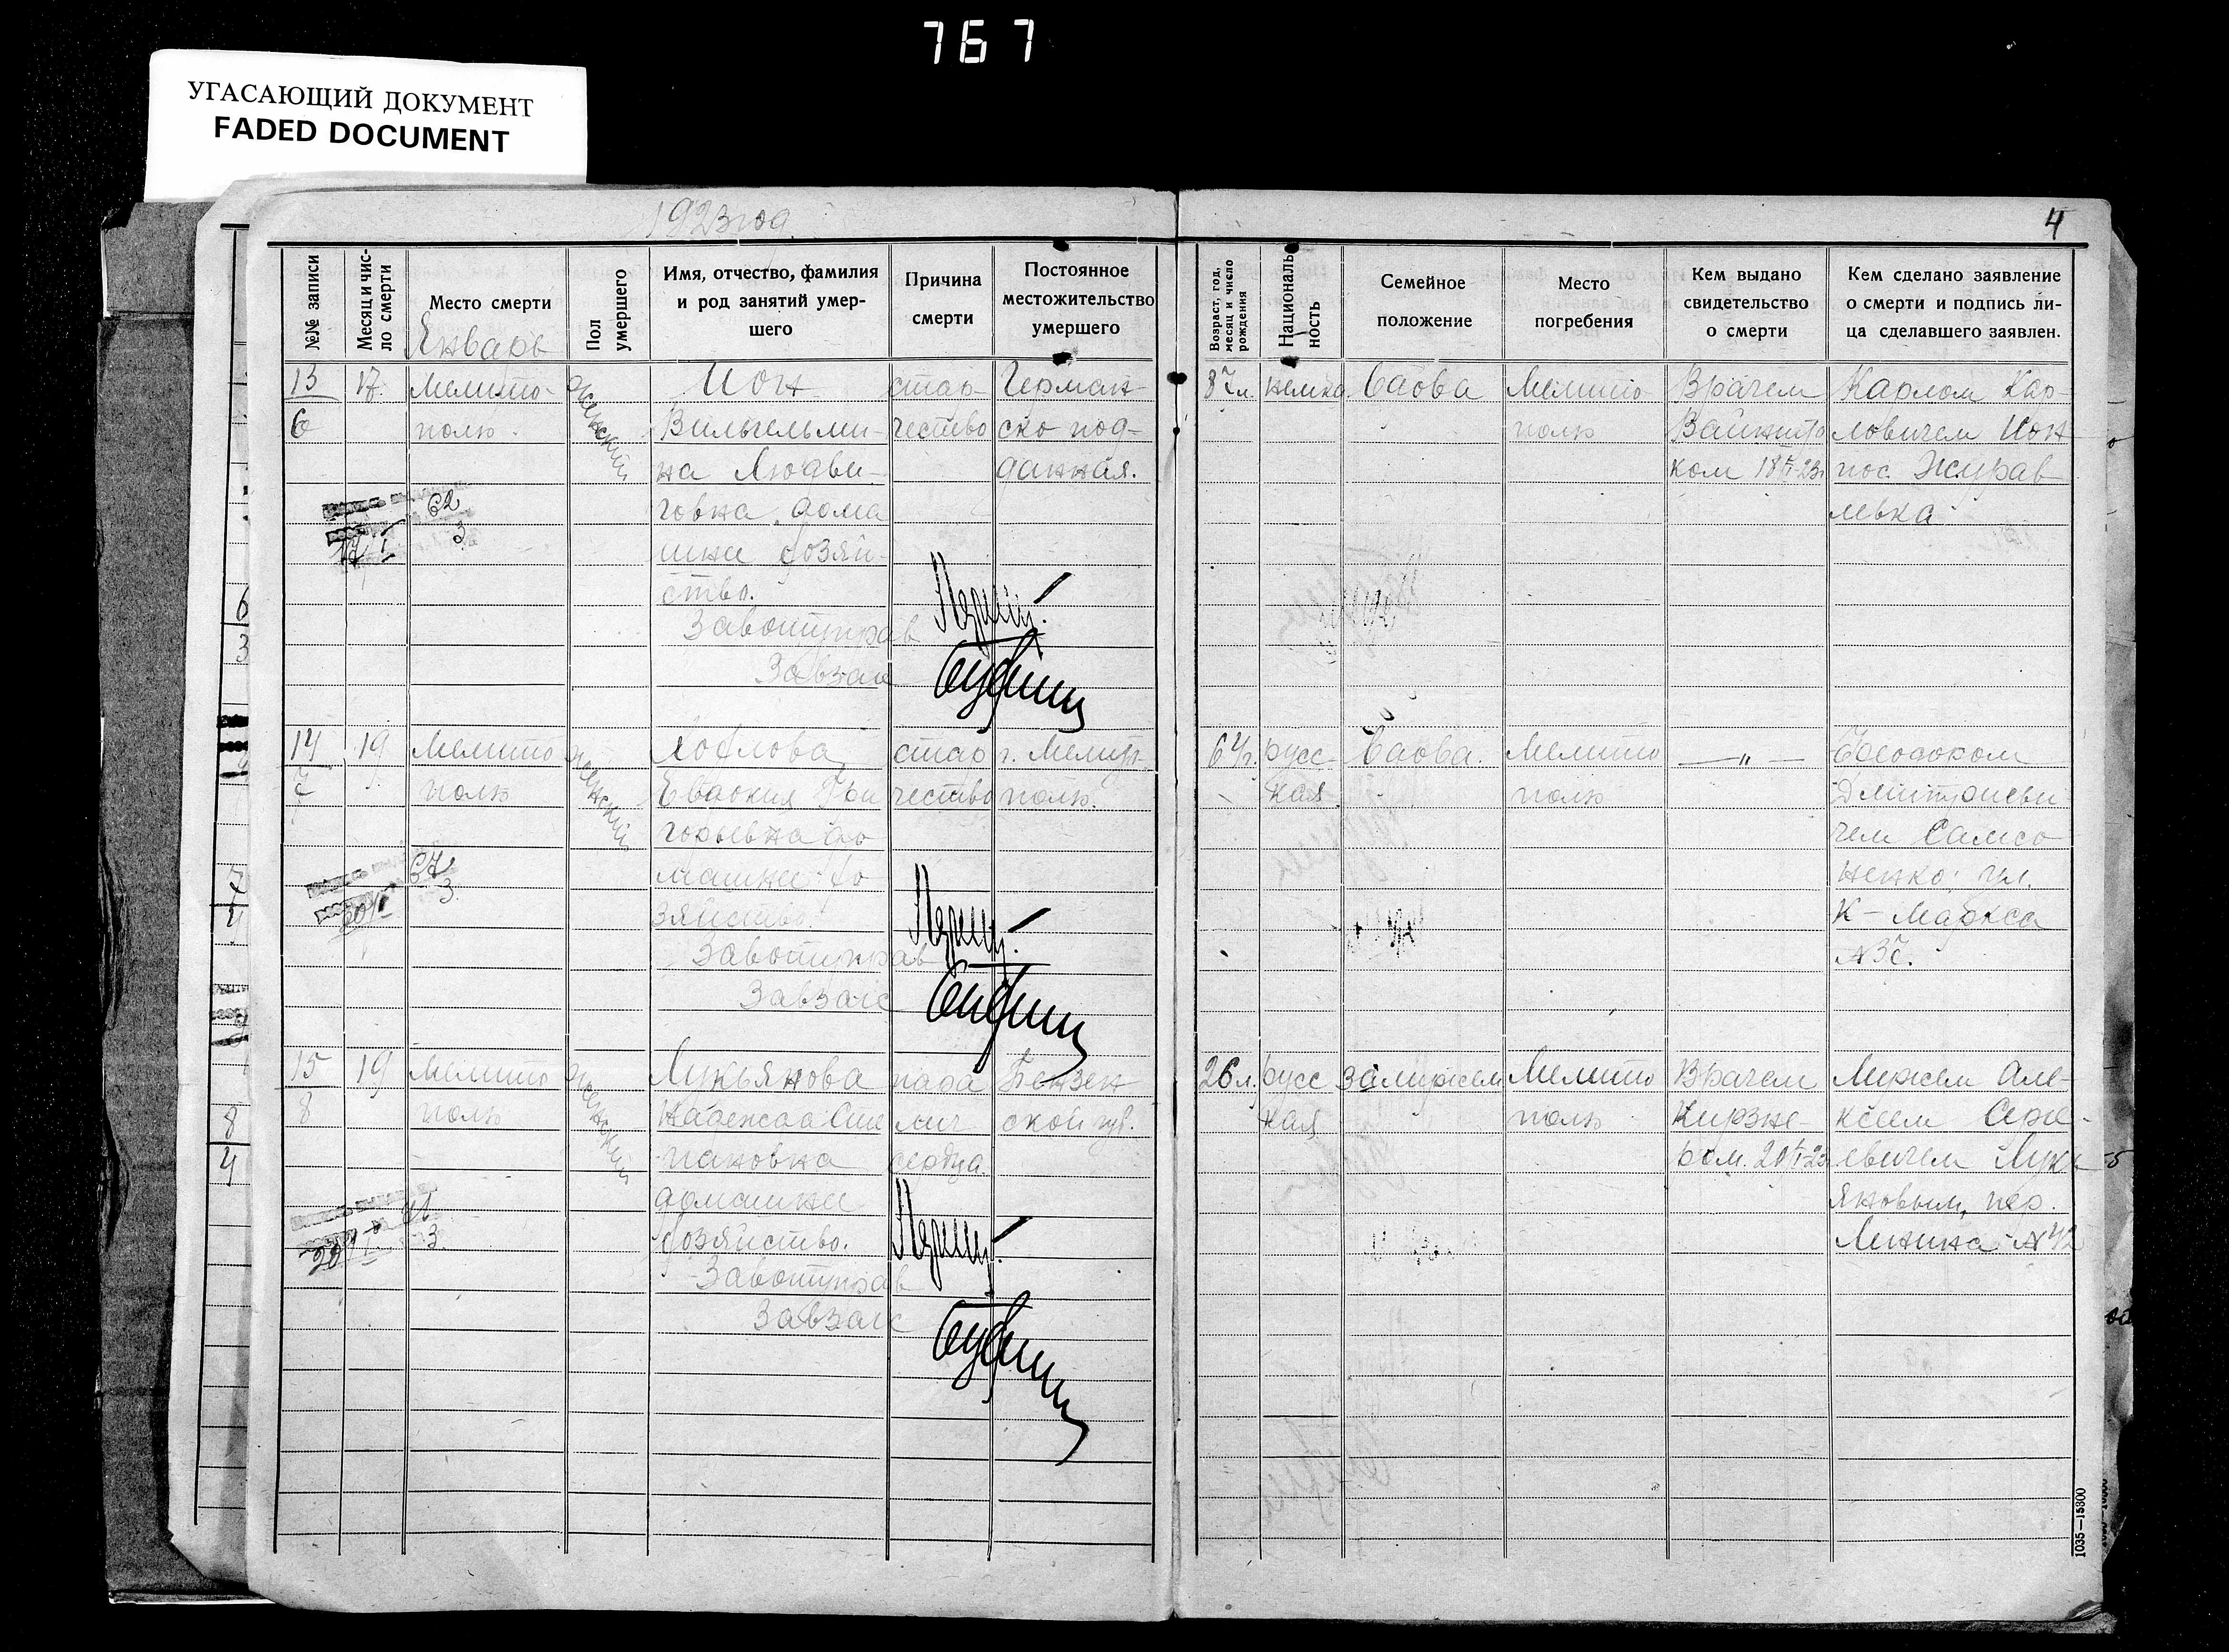 767
УГАСАЮЩИЙ ДОКУМЕНТ
FADED DOCUMENT
1923 год.
4
№№ записи
Месяц и чис-
ло смерти
Место смерти
Январь
Пол
умершего
Имя, отчество, фамилия
и род занятий умер-
шего
Причина
смерти
Постоянное
местожительство
умершего
Возраст, год,
месяц и число
рождения
Националь-
ность
Семейное
положение
Место
погребения
Кем выдано
свидетельство
о смерти
Кем сделано заявление
о смерти и подпись ли-
ца сделавшего заявлен.
13
6
17
Мелито-
поль
женский
Ион
Вильгельми-
на Людви-
говна, дома
шнее хозяй-
ство.
Завотуправ
Завзагс
стар
чество
Герман
ско под-
данная.
87 л.
немка
вдова
Мелито
поль
Врачем
ком 18/I-23г
Карлом Кар-
ловичем Ион
пос. Журав
левка
62
3
14
7
19
Мелито
поль
женский
Евдокия Гри
горьевна до
машнее хо
зяйство.
Завотуправ
Завзагс
стар
чество
г. Мелит.
поль.
64 г.
русс-
кая
вдова.
Мелито
поль
— " —
Дмитриеви
чем Самсо
ненко, ул.
К-Маркса
67
3
15
8
19
Мелито
поль
женский
Лукьянова
Надежда Сте
пановна
домашнее
хозяйство.
Завотуправ
Завзагс
пара
лич
сердца.
Пензен
ской губ.
26 л.
русс
кая
замужем
Мелито
поль
Врачем
Кирзне-
ром. 20/I-23
Мужем Але-
ксеем Серг-
евичем Лукь
яновым, пер.
Ленина №42
3.
20/I
1035—15300